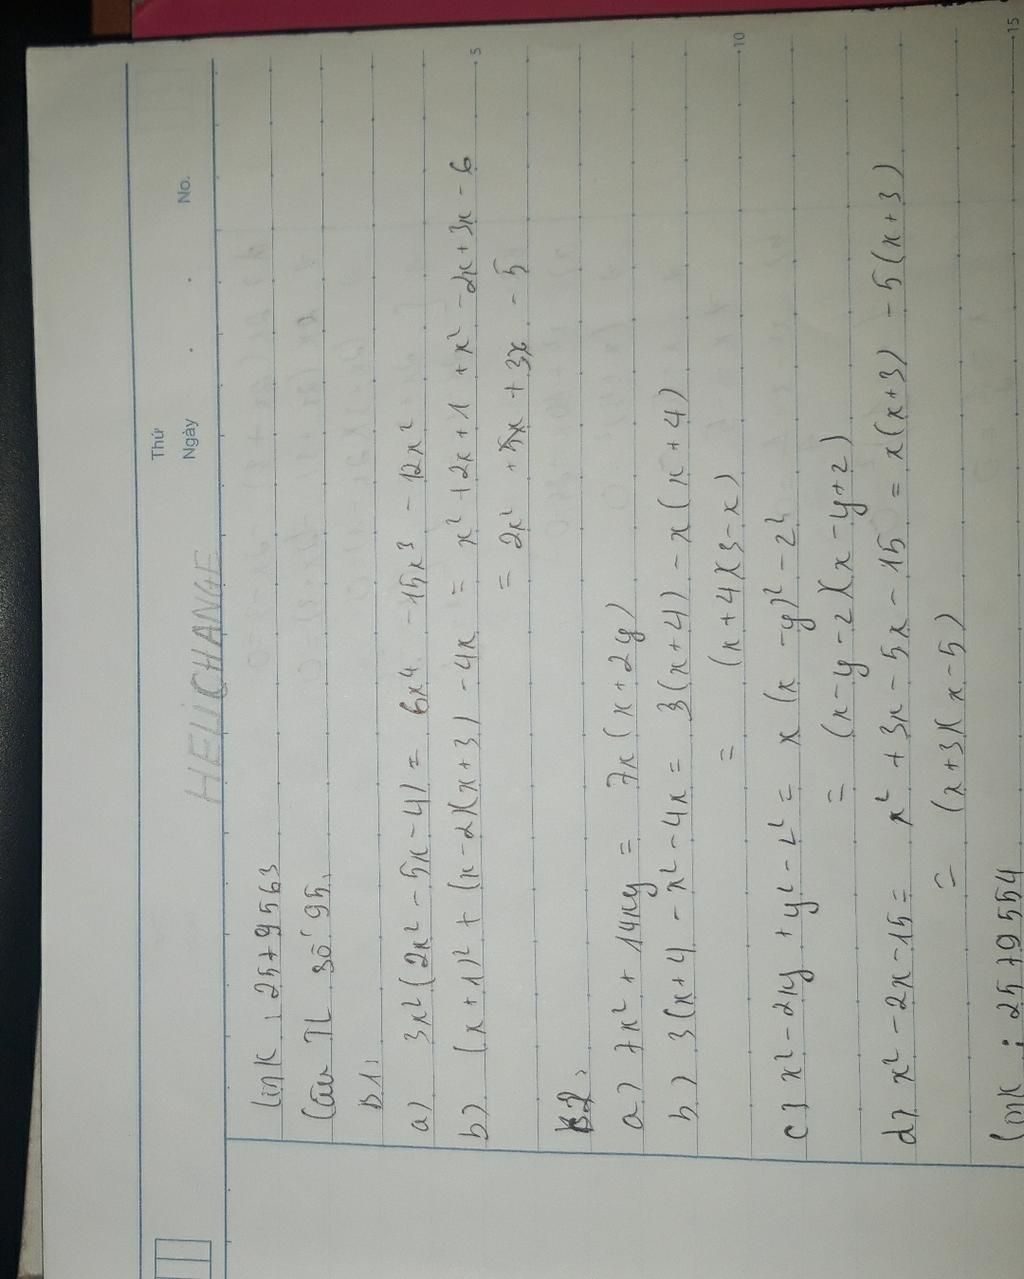 Thứ
Ngày . . No.
HELiCHANGE
link : 2579563
Câu TL số 95.
B1.
a) 3x²(2x² - 5x - 4) = 6x⁴ - 15x³ - 12x²
b) (x + 1)² + (x - 2)(x + 3) - 4x = x² + 2x + 1 + x² - 2x + 3x - 6
= 2x² + 5x + 3x - 5
5
B2.
a) 7x² + 14xy = 7x(x + 2y)
b) 3(x + 4 - x² - 4x = 3(x + 4) - x(x + 4)
= (x + 4)(3 - x)
10
c) x² - 2xy + y² - z² = x(x - y)² - z²
= (x - y - z)(x - y + z)
d) x² - 2x - 15 = x² + 3x - 5x - 15 = x(x + 3) - 5(x + 3)
= (x + 3)(x - 5)
link : 2579554
15